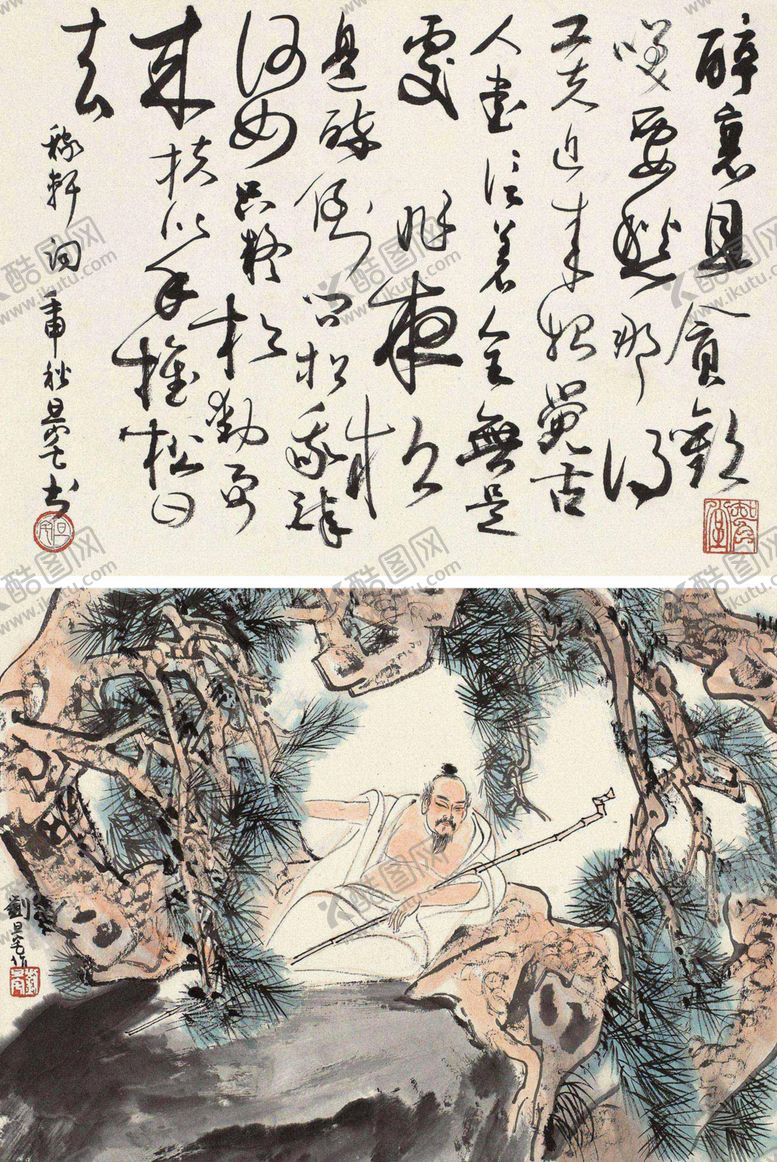 醉裏且貪歡
笑要愁那得
工夫近来始覺古
人書信著全無是
處昨夜松
邊醉倒問松我醉
何如只疑松動要
来扶以手推松曰
去
稼軒詞 秋旦宅书
劉旦宅作
酷图网
www.ikutu.com